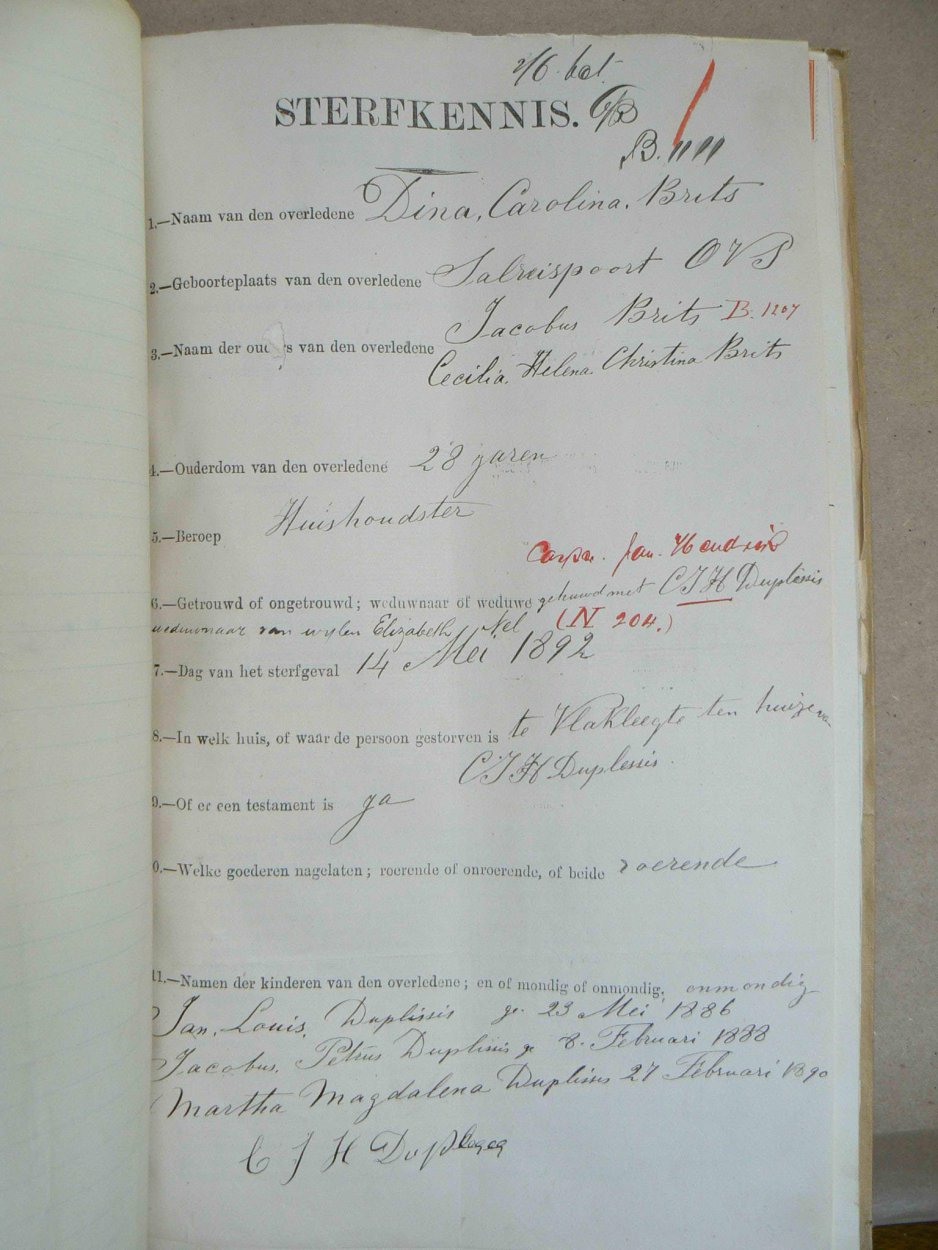 2/6
STERFKENNIS.
B. 1111
1.—Naam van den overledene Dina, Carolina, Brits
2.—Geboorteplaats van den overledene Salreispoort OVS
Jacobus Brits B. 1207
3.—Naam der ou s van den overledene
Cecilia, Helena Christina Brits
4.—Ouderdom van den overledene 28 jaren
5.—Beroep Huishoudster
Jan Hendrik
6.—Getrouwd of ongetrouwd; weduwnaar of weduwe gehuwd met C J H Duplessis
weduwnaar van wylen Elizabeth Nel (N 204.)
7.—Dag van het sterfgeval 14 Mei 1892
8.—In welk huis, of waar de persoon gestorven is te Vlakleegte ten huize van
C J H Duplessis.
9.—Of er een testament is ja
0.—Welke goederen nagelaten; roerende of onroerende, of beide roerende
11.—Namen der kinderen van den overledene; en of mondig of onmondig, onmondig
Jan, Louis, Duplissis ge 23 Mei 1886
Jacobus, Petrus Duplissis ge 8. Februari 1888
Martha Magdalena Duplissis 27 Februari 1890
C J H